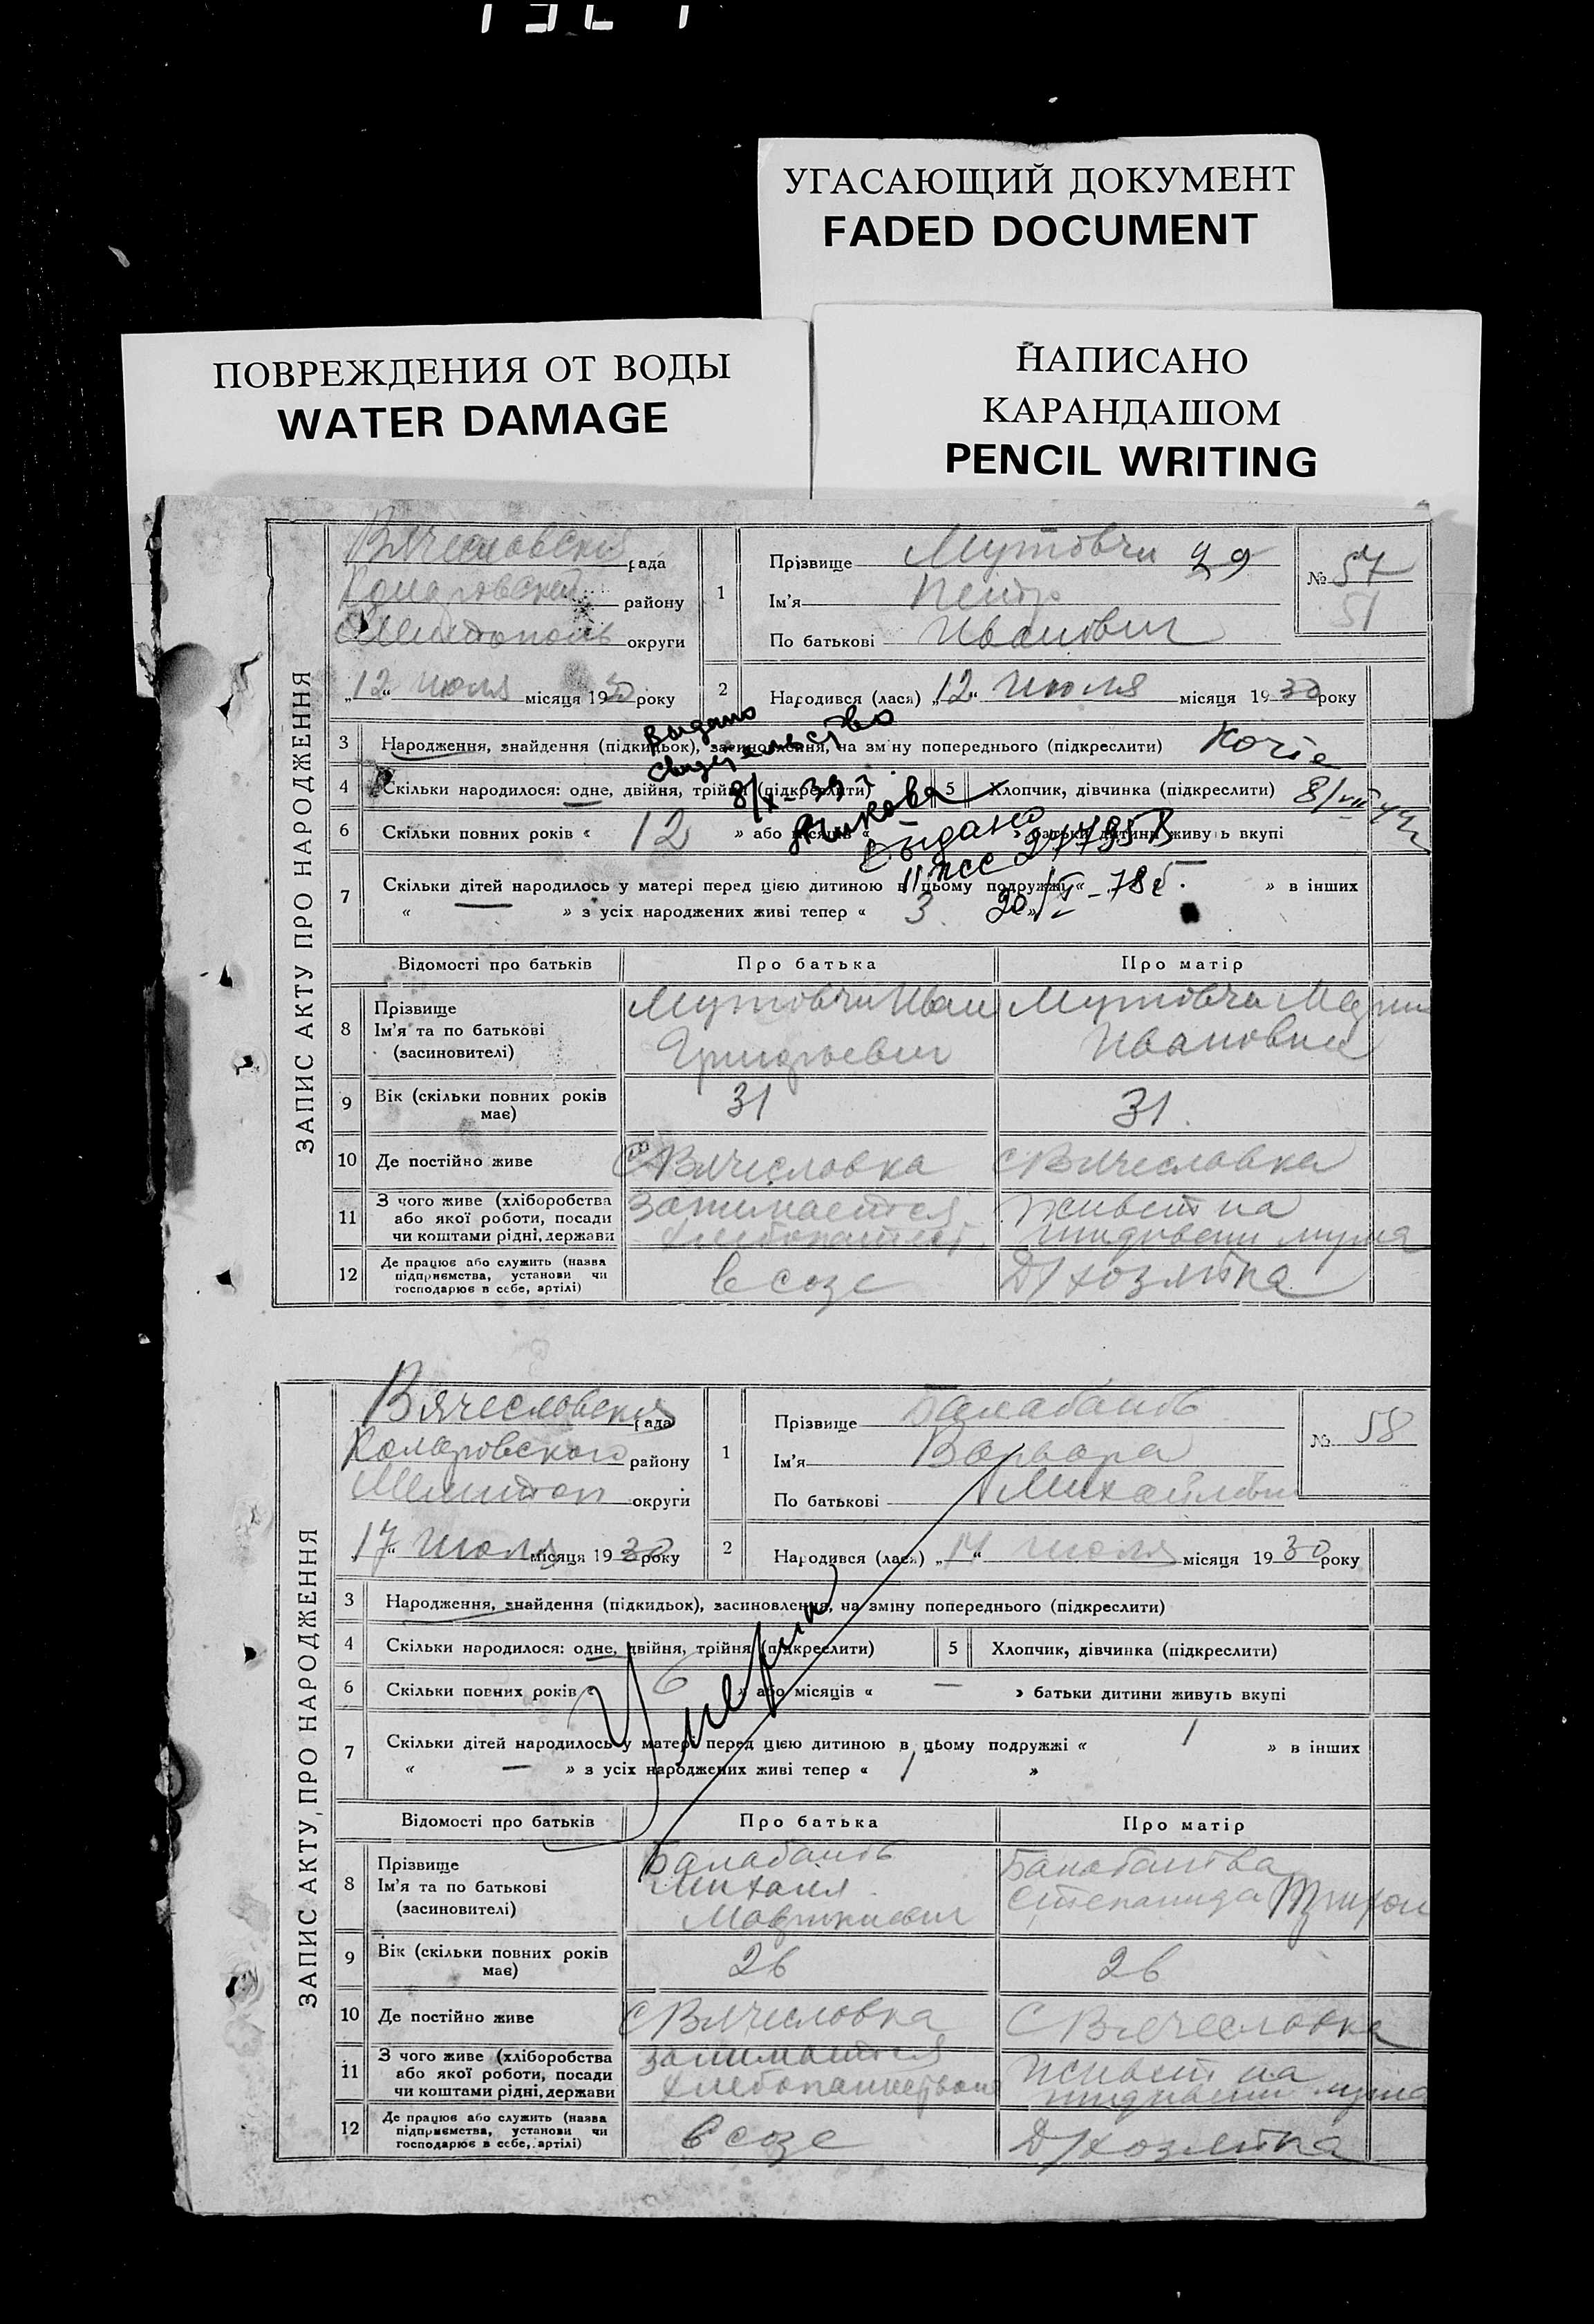 УГАСАЮЩИЙ ДОКУМЕНТ
FADED DOCUMENT
ПОВРЕЖДЕНИЯ ОТ ВОДЫ
WATER DAMAGE
НАПИСАНО
КАРАНДАШОМ
PENCIL WRITING
ЗАПИС АКТУ ПРО НАРОДЖЕННЯ
Вячесловской рада
району
Мелитополь округи
„12“ июля місяця 1930 року
1
Прізвище Мутовчи 29
Ім'я Петр
По батькові Иванович
№ 57
51
2 Народився (лася) „12“ июля місяця 1930 року
3 Народження, знайдення (підкидьок), засиновлення, на зміну попереднього (підкреслити)
выдано
свидетельство
8/X-39 г
4 Скільки народилося: одне, двійня, трійня (підкреслити) 5 Хлопчик, дівчинка (підкреслити)
6 Скільки повних років « 12 » або місяців « » батьки дитини живуть вкупі
Выдано
7 Скільки дітей народилось у матері перед цією дитиною в цьому подружжі « » в інших
« — » з усіх народжених живі тепер « 3 »
Відомості про батьків Про батька Про матір
8 Прізвище
Ім'я та по батькові
(засиновителі)
Мутовчи Иван
Григорьевич
Мутовчи Мария
Ивановна
9 Вік (скільки повних років має) 31 31
10 Де постійно живе С Вячесловка С Вячесловка
11 З чого живе (хліборобства
або якої роботи, посади
чи коштами рідні, держави
Занимается
Живет на
иждивени мужа
12 Де працює або служить (назва
підприємства, установи чи
господарює в себе, артілі)
в созе Д/хозяйка
ЗАПИС АКТУ ПРО НАРОДЖЕННЯ
Вячесловская рада
Коларовского району
Мелитоп округи
„17“ июля місяця 1930 року
1
Прізвище Балабанов
Ім'я Варвара
По батькові Михайловна
№ 58
2 Народився (лася) „14“ июля місяця 1930 року
3 Народження, знайдення (підкидьок), засиновлення, на зміну попереднього (підкреслити)
4 Скільки народилося: одне, двійня, трійня (підкреслити) 5 Хлопчик, дівчинка (підкреслити)
6 Скільки повних років « 6 » або місяців « — » батьки дитини живуть вкупі
7 Скільки дітей народилось у матері перед цією дитиною в цьому подружжі « 1 » в інших
« — » з усіх народжених живі тепер « 1 »
Відомості про батьків Про батька Про матір
8 Прізвище
Ім'я та по батькові
(засиновителі)
Балабанов
Михаил
Балабанова
Степанида Трифон
9 Вік (скільки повних років має) 26 26
10 Де постійно живе С Вячесловка С Вячесловка
11 З чого живе (хліборобства
або якої роботи, посади
чи коштами рідні, держави
занимается
хлебопашеством
Живет на
иждивени мужа
12 Де працює або служить (назва
підприємства, установи чи
господарює в себе, артілі)
в созе Д/хозяйка